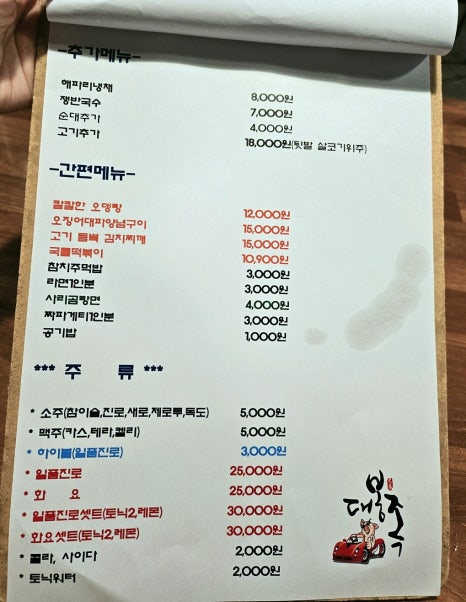 -추가메뉴-
해파리냉채 8,000원
쟁반국수 7,000원
순대추가 4,000원
고기추가 18,000원(뒷발 살코기위주)
-간편메뉴-
칼칼한 오뎅탕 12,000원
오징어대파양념구이 15,000원
고기 듬뿍 김치찌개 15,000원
국물떡볶이 10,900원
참치주먹밥 3,000원
라면1인분 3,000원
사리곰탕면 4,000원
짜파게티1인분 3,000원
공기밥 1,000원
*** 주 류 ***
* 소주(참이슬,진로,새로,제로투,독도) 5,000원
* 맥주(카스,테라,켈리) 5,000원
* 하이볼(일품진로) 3,000원
* 일품진로 25,000원
* 화 요 25,000원
* 일품진로셋트(토닉2,레몬) 30,000원
* 화요셋트(토닉2,레몬) 30,000원
* 콜라, 사이다 2,000원
* 토닉워터 2,000원
대봉족